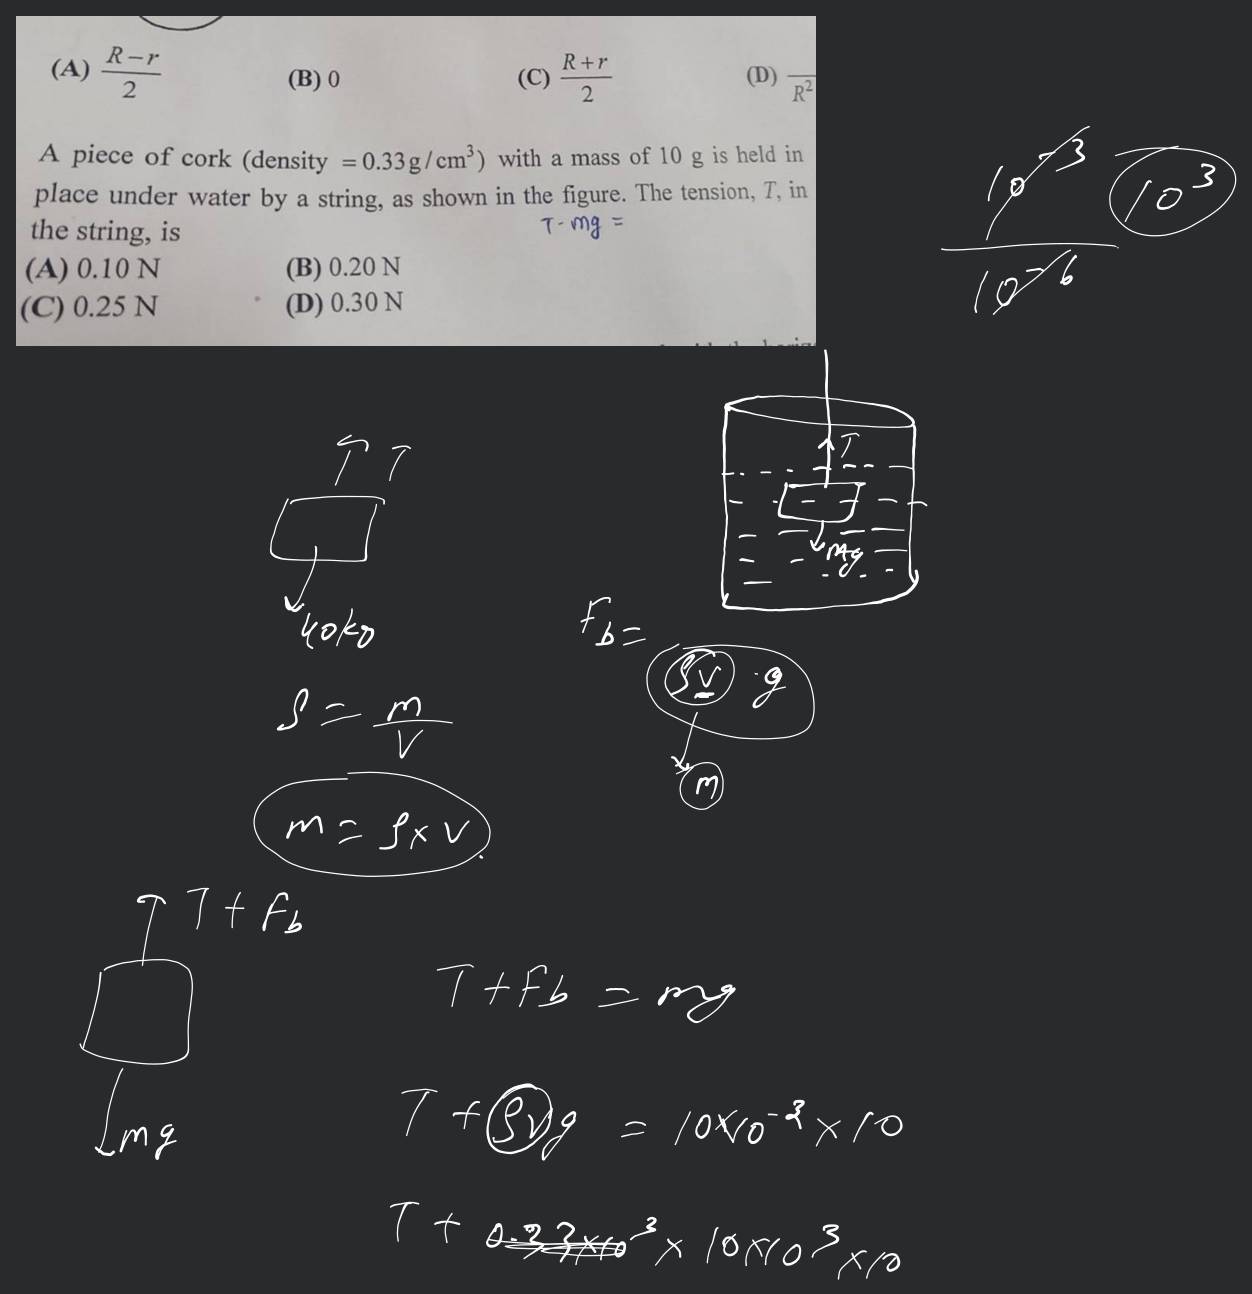 (A) R-r/2 (B) 0 (C) R+r/2 (D) /R²
A piece of cork (density = 0.33 g/cm³) with a mass of 10 g is held in
place under water by a string, as shown in the figure. The tension, T, in
the string, is
T - mg =
(A) 0.10 N (B) 0.20 N
(C) 0.25 N (D) 0.30 N
10⁻³/10⁻⁶ 10³
T
T
mg
F_b =
ρv · g
m
ρ = m/V
m = ρ × V
T + F_b
mg
T + F_b = mg
T + ρvg = 10×10⁻³ × 10
T + 0.33×10³ × 10×10³ × 10